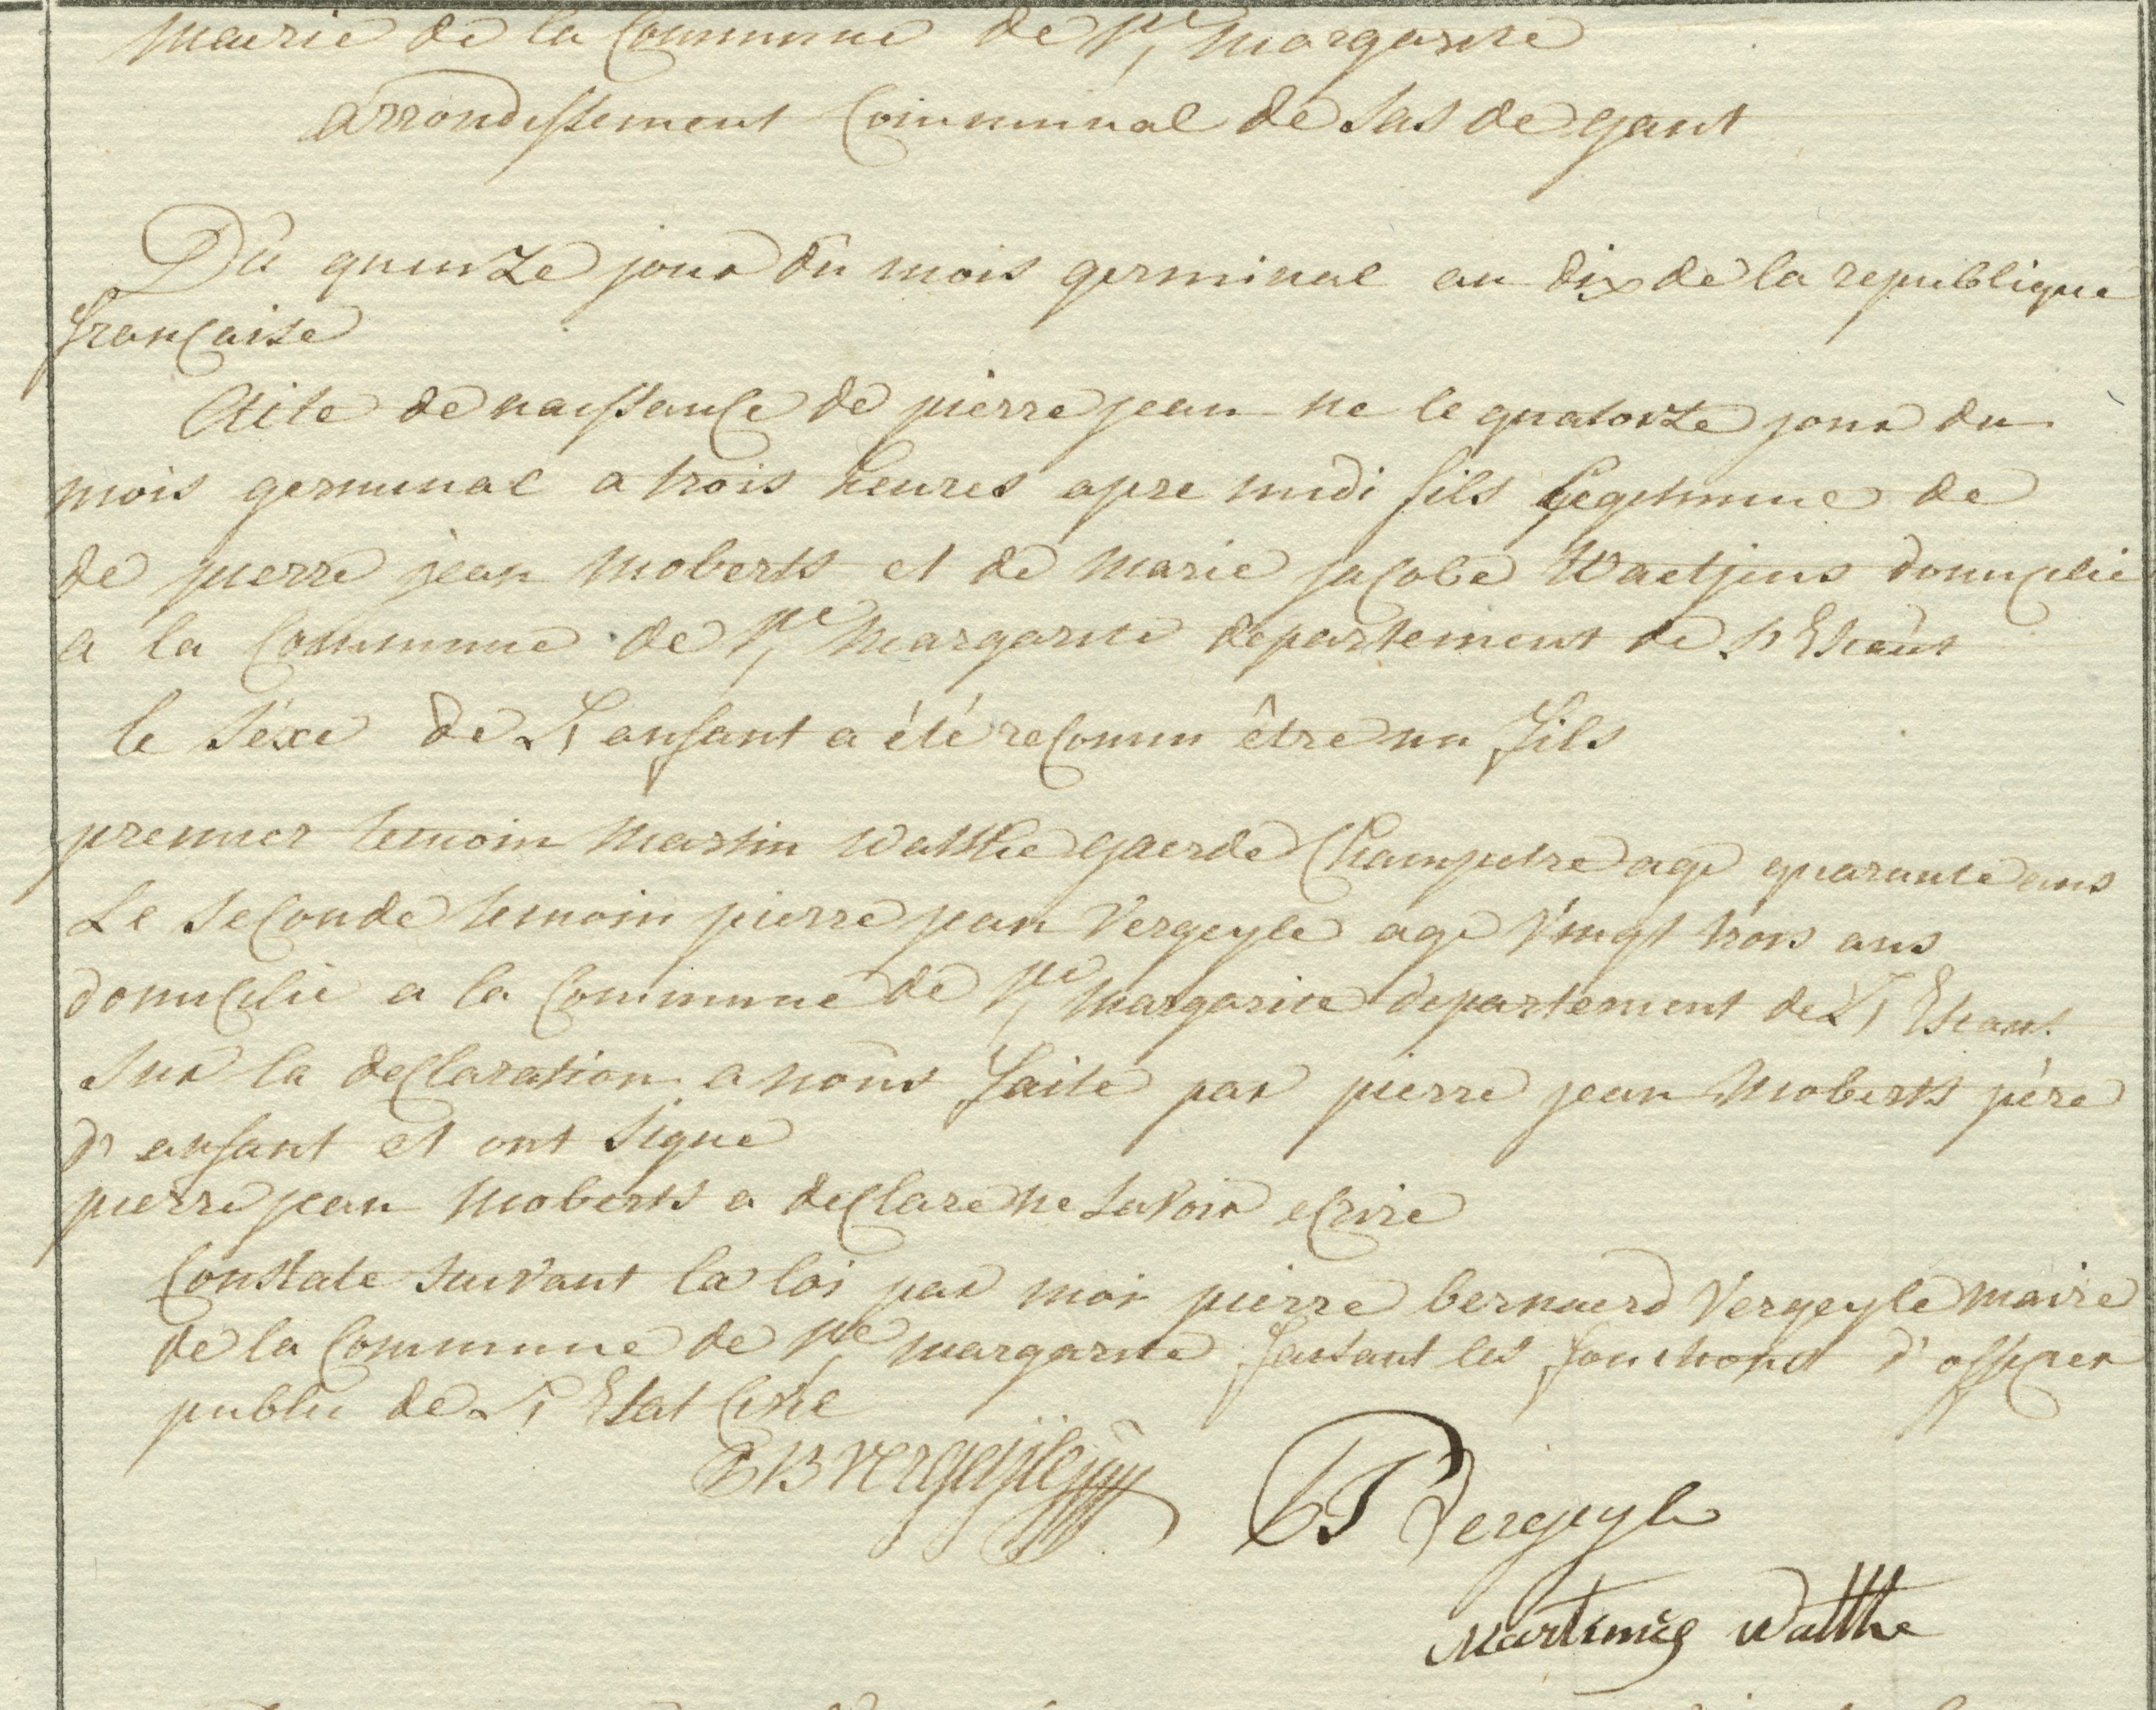 mairie de la Commune de Ste margarite
arrondissement Communal de Sas de gant
Du quinze jour du mois germinal an dix de la republique
française
Acte de naissance de pierre jean ne le quatorze jour du
mois germinal a trois heures apre midi fils legitimme de
de pierre jean moberts et de marie jacobe Waetjens domicilié
a la Commune de Ste margarite departement de L'Escaut
le séxe de L'anfant a été reconnu être un fils
premier temoin martin watthe gaerde Champetre agé quarante ans
Le seconde temoin pierre jean Vergeyle agé vingt trois ans
domicilié a la Commune de Ste margarite departement de L'Escaut
Sur la declaration a nous faite par pierre jean moberts père
d'anfant et ont signe
pierre jean moberts a declare ne savoir ecrire
Constate suivant la loi par moi pierre bernaerd Vergeyle maire
de la Commune de Ste margarite faisant les fonctions d'officier
public de L'Etat Civil
PB vergeyle
PJ Vergeyle
Martinus Watthe